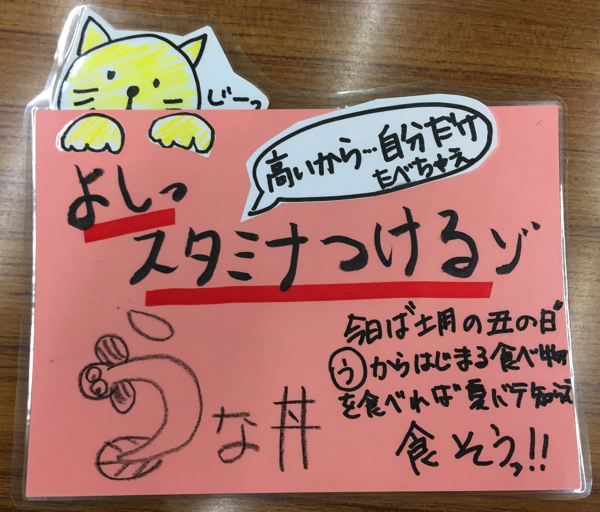 じーっ
高いから…自分だけ
たべちゃえ
よしっ
スタミナつけるゾ
今日は゛土用の丑の日゛
うからはじまる食べ物
を食べれば夏バテ知らず
うな丼
食そうっ!!